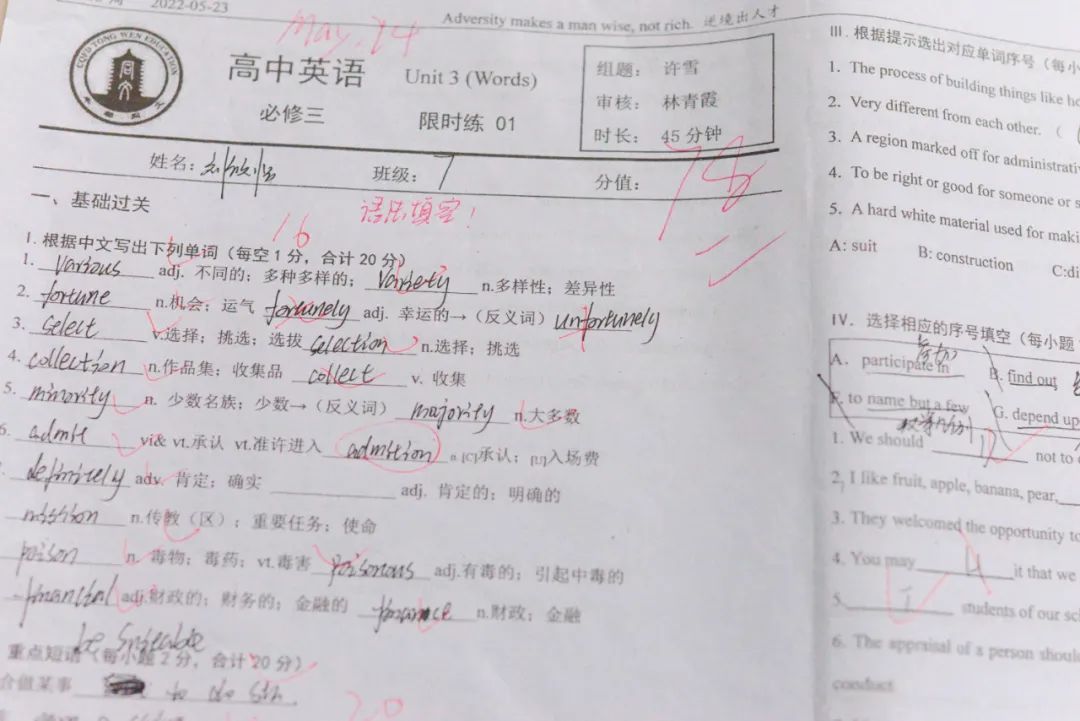 2022-05-23
Adversity makes a man wise, not rich. 逆境出人才
May. 24
CQFD TONG WEN EDUCATION
高中英语 Unit 3 (Words)
必修三 限时练 01
组题: 许雪
审核: 林青霞
时长: 45 分钟
姓名: 班级: 7 分值: 78
一、基础过关
语法填空!
16
1. 根据中文写出下列单词（每空 1 分，合计 20 分）
1. various adj. 不同的；多种多样的； variety n.多样性；差异性
2. fortune n.机会；运气 fortunely adj. 幸运的→（反义词）unfortunely
3. select v.选择；挑选；选拔 selection n.选择；挑选
4. collection n.作品集；收集品 collect v. 收集
5. minority n. 少数名族；少数→（反义词） majority n.大多数
6. admit vi& vt.承认 vt.准许进入 admittion n.[C]承认；[U]入场费
definitely adv. 肯定；确实 adj. 肯定的；明确的
mission n.传教（区）；重要任务；使命
poison n. 毒物；毒药；vt.毒害 poisonous adj.有毒的；引起中毒的
financial adj.财政的；财务的；金融的 finance n.财政；金融
重点短语（每小题 2 分，合计 20 分）
be suitable
合做某事 to do sth.
20
III. 根据提示选出对应单词序号（每小
1. The process of building things like
2. Very different from each other. (
3. A region marked off for
4. To be right or good for someone or
5. A hard white material used for
A: suit B: construction
IV. 选择相应的序号填空（每小题
A. participate in B. find out
F. to name but a few G. depend up
1. We should not to
2. I like fruit, apple, banana, pear,
3. They welcomed the opportunity to
4. You may it that we
5. students of our
6. The appraisal of a person
conduct